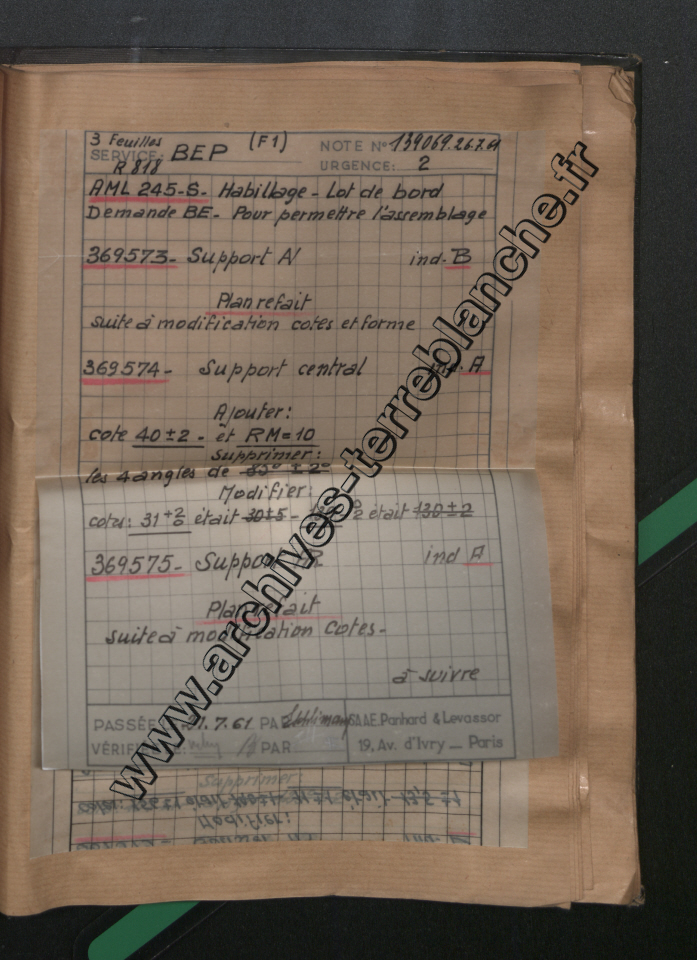 3 Feuilles (F1) NOTE N° 139069.26.7.61
SERVICE: BEP
R 818 URGENCE: 2
AML 245-S- Habillage - Lot de bord
Demande BE- Pour permettre l'assemblage
369573- Support AV ind- B
Plan refait
suite à modification cotes et forme
369574- Support central ind- A
Ajouter:
cote 40±2 - et RM=10
Supprimer:
les 4 angles de 85° ± 2°
Modifier:
cotes: 31 +2 0 était 30±5 - était 130±2
369575- Support AR ind A
Plan refait
suite à modification cotes-
à suivre
PASSÉE 21.7.61 PAR S.A.A.E. Panhard & Levassor
VÉRIFIÉE PAR 19, Av. d'Ivry - Paris
Supprimer:
Modifier:
www.archives-terreblanche.fr